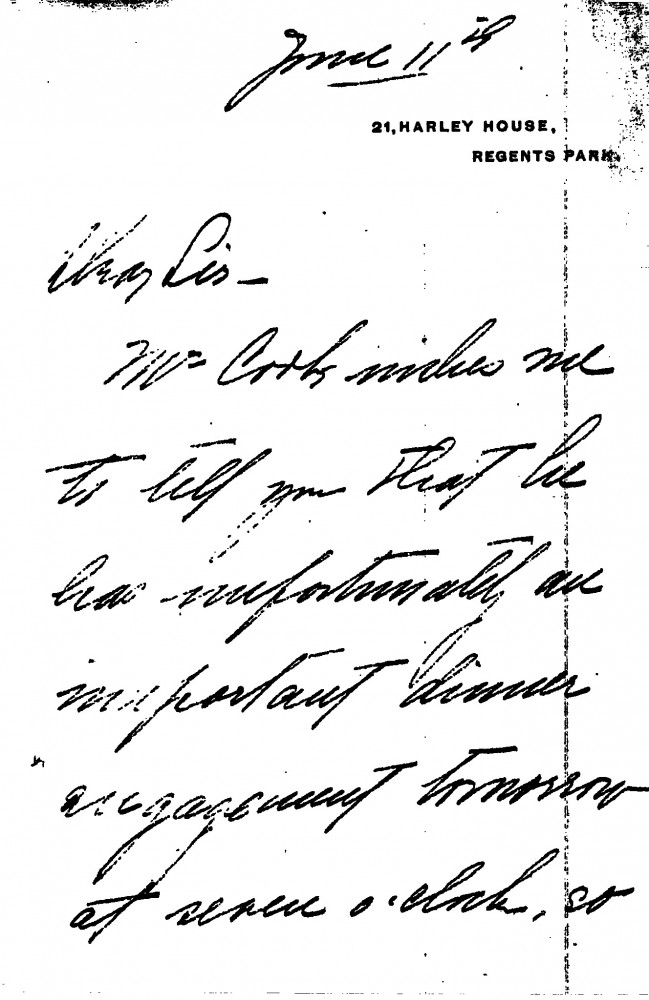 June 11th
21, HARLEY HOUSE,
REGENTS PARK.
Dear Sir—
Mr Cook wishes me
to tell you that he
has unfortunately an
important dinner
engagement tomorrow
at seven o'clock, so